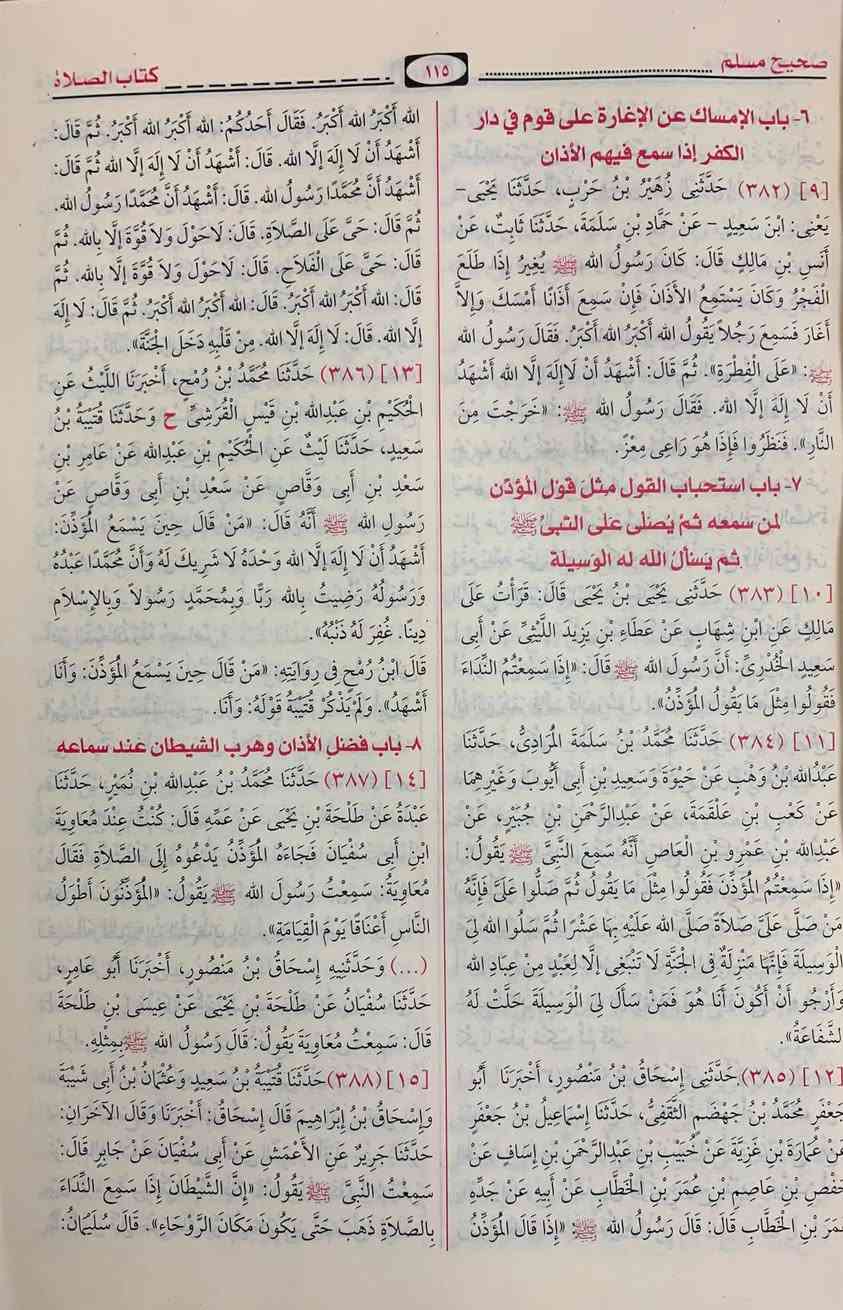 صحيح مسلم
١١٥
كتاب الصلاة
٦- باب الإمساك عن الإغارة على قوم في دار
الكفر إذا سمع فيهم الأذان
[٩] (٣٨٢) حَدَّثَنِى زُهَيْرُ بْنُ حَرْبٍ، حَدَّثَنَا يَحْيَى –
يَعْنِى: ابْنَ سَعِيدٍ – عَنْ حَمَّادِ بْنِ سَلَمَةَ، حَدَّثَنَا ثَابِتٌ، عَنْ
أَنَسِ بْنِ مَالِكٍ قَالَ: كَانَ رَسُولُ الله ﷺ يُغِيرُ إِذَا طَلَعَ
الْفَجْرُ وَكَانَ يَسْتَمِعُ الأَذَانَ فَإِنْ سَمِعَ أَذَانًا أَمْسَكَ وَإِلاَّ
أَغَارَ فَسَمِعَ رَجُلاً يَقُولُ الله أَكْبَرُ الله أَكْبَرُ. فَقَالَ رَسُولُ الله
ﷺ: «عَلَى الْفِطْرَةِ». ثُمَّ قَالَ: أَشْهَدُ أَنْ لاَإِلَهَ إِلَّا الله أَشْهَدُ
أَنْ لَا إِلَهَ إِلَّا الله. فَقَالَ رَسُولُ الله ﷺ: «خَرَجْتَ مِنَ
النَّارِ». فَنَظَرُوا فَإِذَا هُوَ رَاعِى مِعْزًى.
٧- باب استحباب القول مثل قول المؤذن
لمن سمعه ثم يُصلى على النبىُ ﷺ
ثم يَسألُ الله له الوَسيلة
[١٠] (٣٨٣) حَدَّثَنِى يَحْيَى بْنُ يَحْيَى قَالَ: قَرَأْتُ عَلَى
مَالِكٍ عَنِ ابْنِ شِهَابٍ عَنْ عَطَاءِ بْنِ يَزِيدَ اللَّيْثِىِّ عَنْ أَبِى
سَعِيدٍ الْخُدْرِىِّ: أَنَّ رَسُولَ الله ﷺ قَالَ: «إِذَا سَمِعْتُمُ النِّدَاءَ
فَقُولُوا مِثْلَ مَا يَقُولُ الْمُؤَذِّنُ».
[١١] (٣٨٤) حَدَّثَنَا مُحَمَّدُ بْنُ سَلَمَةَ الْمُرَادِىُّ، حَدَّثَنَا
عَبْدُالله بْنُ وَهْبٍ عَنْ حَيْوَةَ وَسَعِيدِ بْنِ أَبِى أَيُّوبَ وَغَيْرِهِمَا
عَنْ كَعْبِ بْنِ عَلْقَمَةَ، عَنْ عَبْدِالرَّحْمَنِ بْنِ جُبَيْرٍ، عَنْ
عَبْدِالله بْنِ عَمْرِو بْنِ الْعَاصِ أَنَّهُ سَمِعَ النَّبِىَّ ﷺ يَقُولُ:
«إِذَا سَمِعْتُمُ الْمُؤَذِّنَ فَقُولُوا مِثْلَ مَا يَقُولُ ثُمَّ صَلُّوا عَلَىَّ فَإِنَّهُ
مَنْ صَلَّى عَلَىَّ صَلاَةً صَلَّى الله عَلَيْهِ بِهَا عَشْرًا ثُمَّ سَلُوا الله لِىَ
الْوَسِيلَةَ فَإِنَّهَا مَنْزِلَةٌ فِى الْجَنَّةِ لَا تَنْبَغِى إِلَّا لِعَبْدٍ مِنْ عِبَادِ الله
وَأَرْجُو أَنْ أَكُونَ أَنَا هُوَ فَمَنْ سَأَلَ لِىَ الْوَسِيلَةَ حَلَّتْ لَهُ
لشَّفَاعَةُ».
[١٢] (٣٨٥) حَدَّثَنِى إِسْحَاقُ بْنُ مَنْصُورٍ، أَخْبَرَنَا أَبُو
جَعْفَرٍ مُحَمَّدُ بْنُ جَهْضَمٍ الثَّقَفِىُّ، حَدَّثَنَا إِسْمَاعِيلُ بْنُ جَعْفَرٍ
عَنْ عُمَارَةَ بْنِ غَزِيَّةَ عَنْ خُبَيْبِ بْنِ عَبْدِالرَّحْمَنِ بْنِ إِسَافٍ عَنْ
حَفْصِ بْنِ عَاصِمِ بْنِ عُمَرَ بْنِ الْخَطَّابِ عَنْ أَبِيهِ عَنْ جَدِّهِ
عُمَرَ بْنِ الْخَطَّابِ قَالَ: قَالَ رَسُولُ الله ﷺ «إِذَا قَالَ الْمُؤَذِّنُ
الله أَكْبَرُ الله أَكْبَرُ. فَقَالَ أَحَدُكُمُ: الله أَكْبَرُ الله أَكْبَرُ. ثُمَّ قَالَ:
أَشْهَدُ أَنْ لَا إِلَهَ إِلَّا الله. قَالَ: أَشْهَدُ أَنْ لَا إِلَهَ إِلَّا الله ثُمَّ قَالَ:
أَشْهَدُ أَنَّ مُحَمَّدًا رَسُولُ الله. قَالَ: أَشْهَدُ أَنَّ مُحَمَّدًا رَسُولُ الله.
ثُمَّ قَالَ: حَىَّ عَلَى الصَّلاَةِ. قَالَ: لاَحَوْلَ وَلاَ قُوَّةَ إِلَّا بِالله. ثُمَّ
قَالَ: حَىَّ عَلَى الْفَلاَحِ. قَالَ: لاَحَوْلَ وَلاَ قُوَّةَ إِلَّا بِالله. ثُمَّ
قَالَ: الله أَكْبَرُ الله أَكْبَرُ. قَالَ: الله أَكْبَرُ الله أَكْبَرُ. ثُمَّ قَالَ: لَا إِلَهَ
إِلَّا الله. قَالَ: لَا إِلَهَ إِلَّا الله. مِنْ قَلْبِهِ دَخَلَ الْجَنَّةَ».
[١٣] (٣٨٦) حَدَّثَنَا مُحَمَّدُ بْنُ رُمْحٍ، أَخْبَرَنَا اللَّيْثُ عَنِ
الْحُكَيْمِ بْنِ عَبْدِالله بْنِ قَيْسٍ الْقُرَشِىِّ ح وَحَدَّثَنَا قُتَيْبَةُ بْنُ
سَعِيدٍ، حَدَّثَنَا لَيْثٌ عَنِ الْحُكَيْمِ بْنِ عَبْدِالله عَنْ عَامِرِ بْنِ
سَعْدِ بْنِ أَبِى وَقَّاصٍ عَنْ سَعْدِ بْنِ أَبِى وَقَّاصٍ عَنْ
رَسُولِ الله ﷺ أَنَّهُ قَالَ: «مَنْ قَالَ حِينَ يَسْمَعُ الْمُؤَذِّنَ:
أَشْهَدُ أَنْ لَا إِلَهَ إِلَّا الله وَحْدَهُ لَا شَرِيكَ لَهُ وَأَنَّ مُحَمَّدًا عَبْدُهُ
وَرَسُولُهُ رَضِيتُ بِالله رَبًّا وَبِمُحَمَّدٍ رَسُولاً وَبِالإِسْلاَمِ
دِينًا. غُفِرَ لَهُ ذَنْبُهُ».
قَالَ ابْنُ رُمْحٍ فِى رِوَايَتِهِ: «مَنْ قَالَ حِينَ يَسْمَعُ الْمُؤَذِّنَ: وَأَنَا
أَشْهَدُ». وَلَمْ يَذْكُرْ قُتَيْبَةُ قَوْلَهُ: وَأَنَا.
٨- باب فضل الأذان وهرب الشيطان عند سماعه
[١٤] (٣٨٧) حَدَّثَنَا مُحَمَّدُ بْنُ عَبْدِالله بْنِ نُمَيْرٍ، حَدَّثَنَا
عَبْدَةُ عَنْ طَلْحَةَ بْنِ يَحْيَى عَنْ عَمِّهِ قَالَ: كُنْتُ عِنْدَ مُعَاوِيَةَ
ابْنِ أَبِى سُفْيَانَ فَجَاءَهُ الْمُؤَذِّنُ يَدْعُوهُ إِلَى الصَّلاَةِ فَقَالَ
مُعَاوِيَةُ: سَمِعْتُ رَسُولَ الله ﷺ يَقُولُ: «الْمُؤَذِّنُونَ أَطْوَلُ
النَّاسِ أَعْنَاقًا يَوْمَ الْقِيَامَةِ».
(...) وَحَدَّثَنِيهِ إِسْحَاقُ بْنُ مَنْصُورٍ، أَخْبَرَنَا أَبُو عَامِرٍ،
حَدَّثَنَا سُفْيَانُ عَنْ طَلْحَةَ بْنِ يَحْيَى عَنْ عِيسَى بْنِ طَلْحَةَ
قَالَ: سَمِعْتُ مُعَاوِيَةَ يَقُولُ: قَالَ رَسُولُ الله ﷺ بِمِثْلِهِ.
[١٥] (٣٨٨) حَدَّثَنَا قُتَيْبَةُ بْنُ سَعِيدٍ وَعُثْمَانُ بْنُ أَبِى شَيْبَةَ
وَإِسْحَاقُ بْنُ إِبْرَاهِيمَ قَالَ إِسْحَاقُ: أَخْبَرَنَا وَقَالَ الآخَرَانِ:
حَدَّثَنَا جَرِيرٌ عَنِ الأَعْمَشِ عَنْ أَبِى سُفْيَانَ عَنْ جَابِرٍ قَالَ:
سَمِعْتُ النَّبِىَّ ﷺ يَقُولُ: «إِنَّ الشَّيْطَانَ إِذَا سَمِعَ النِّدَاءَ
بِالصَّلاَةِ ذَهَبَ حَتَّى يَكُونَ مَكَانَ الرَّوْحَاءِ». قَالَ سُلَيْمَانُ: